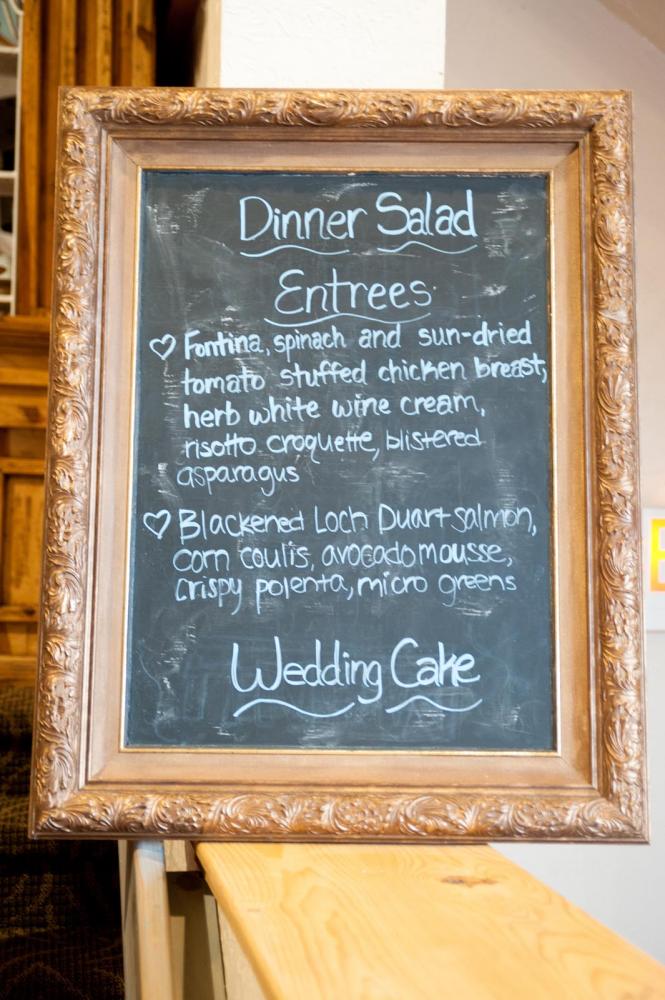 Dinner Salad
Entrees
♡ Fontina, spinach and sun-dried
tomato stuffed chicken breast,
herb white wine cream,
risotto croquette, blistered
asparagus
♡ Blackened Loch Duart salmon,
corn coulis, avocado mousse,
crispy polenta, micro greens
Wedding Cake